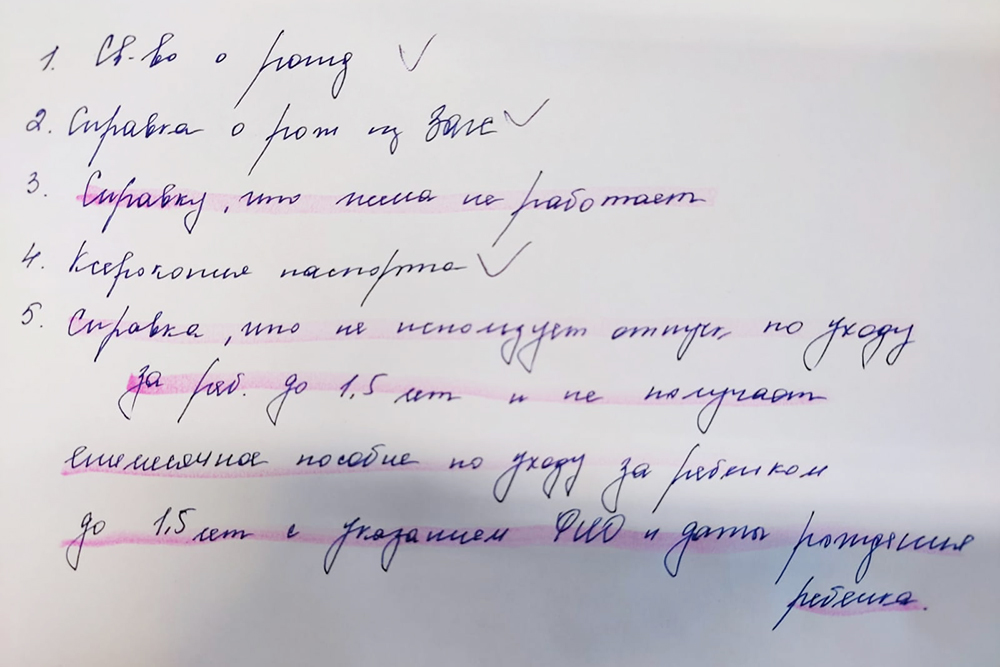 1. Св-во о рожд ✓
2. Справка о рож из Загс ✓
3. Справку, что жена не работает
4. Ксерокопия паспорта ✓
5. Справка, что не использует отпуск по уходу
за реб. до 1,5 лет и не получает
ежемесячное пособие по уходу за ребенком
до 1,5 лет с указанием ФИО и даты рождения
ребенка.